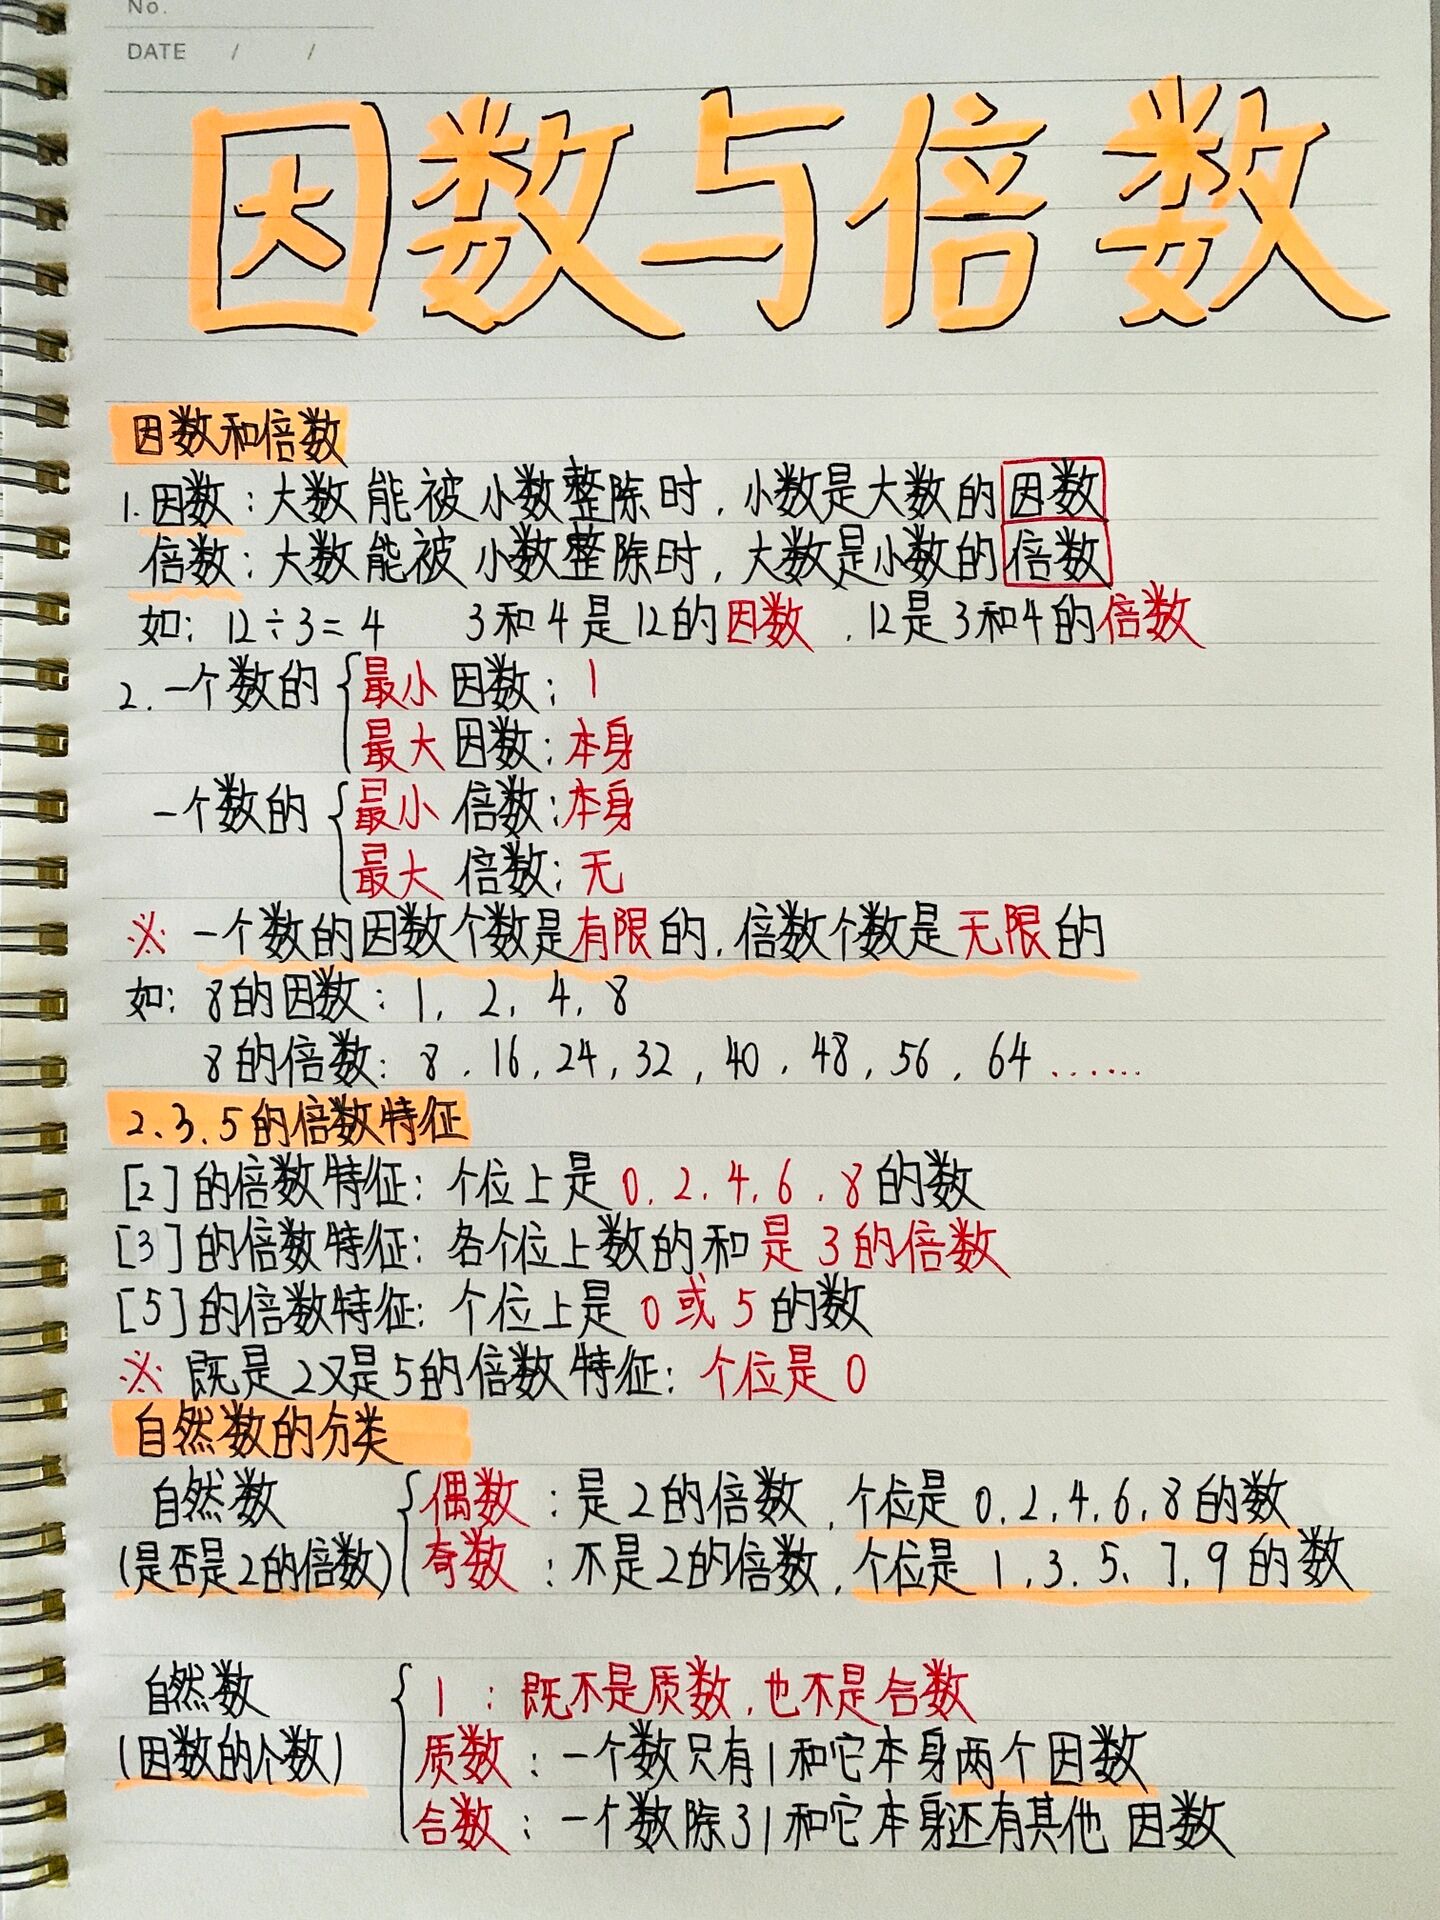 No.
DATE / /
因数与倍数
因数和倍数
1.因数:大数能被小数整除时,小数是大数的因数
倍数:大数能被小数整除时,大数是小数的倍数
如:12÷3=4 3和4是12的因数,12是3和4的倍数
2.一个数的{最小因数:1
最大因数:本身
一个数的{最小倍数:本身
最大倍数:无
※ 一个数的因数个数是有限的,倍数个数是无限的
如:8的因数:1,2,4,8
8的倍数:8,16,24,32,40,48,56,64……
2、3、5的倍数特征
[2]的倍数特征:个位上是0、2、4、6、8的数
[3]的倍数特征:各个位上数的和是3的倍数
[5]的倍数特征:个位上是0或5的数
※ 既是2又是5的倍数特征:个位是0
自然数的分类
自然数 {偶数:是2的倍数,个位是0、2、4、6、8的数
(是否是2的倍数) 奇数:不是2的倍数,个位是1、3、5、7、9的数
自然数 {1:既不是质数,也不是合数
(因数的个数) 质数:一个数只有1和它本身两个因数
合数:一个数除了1和它本身还有其他因数